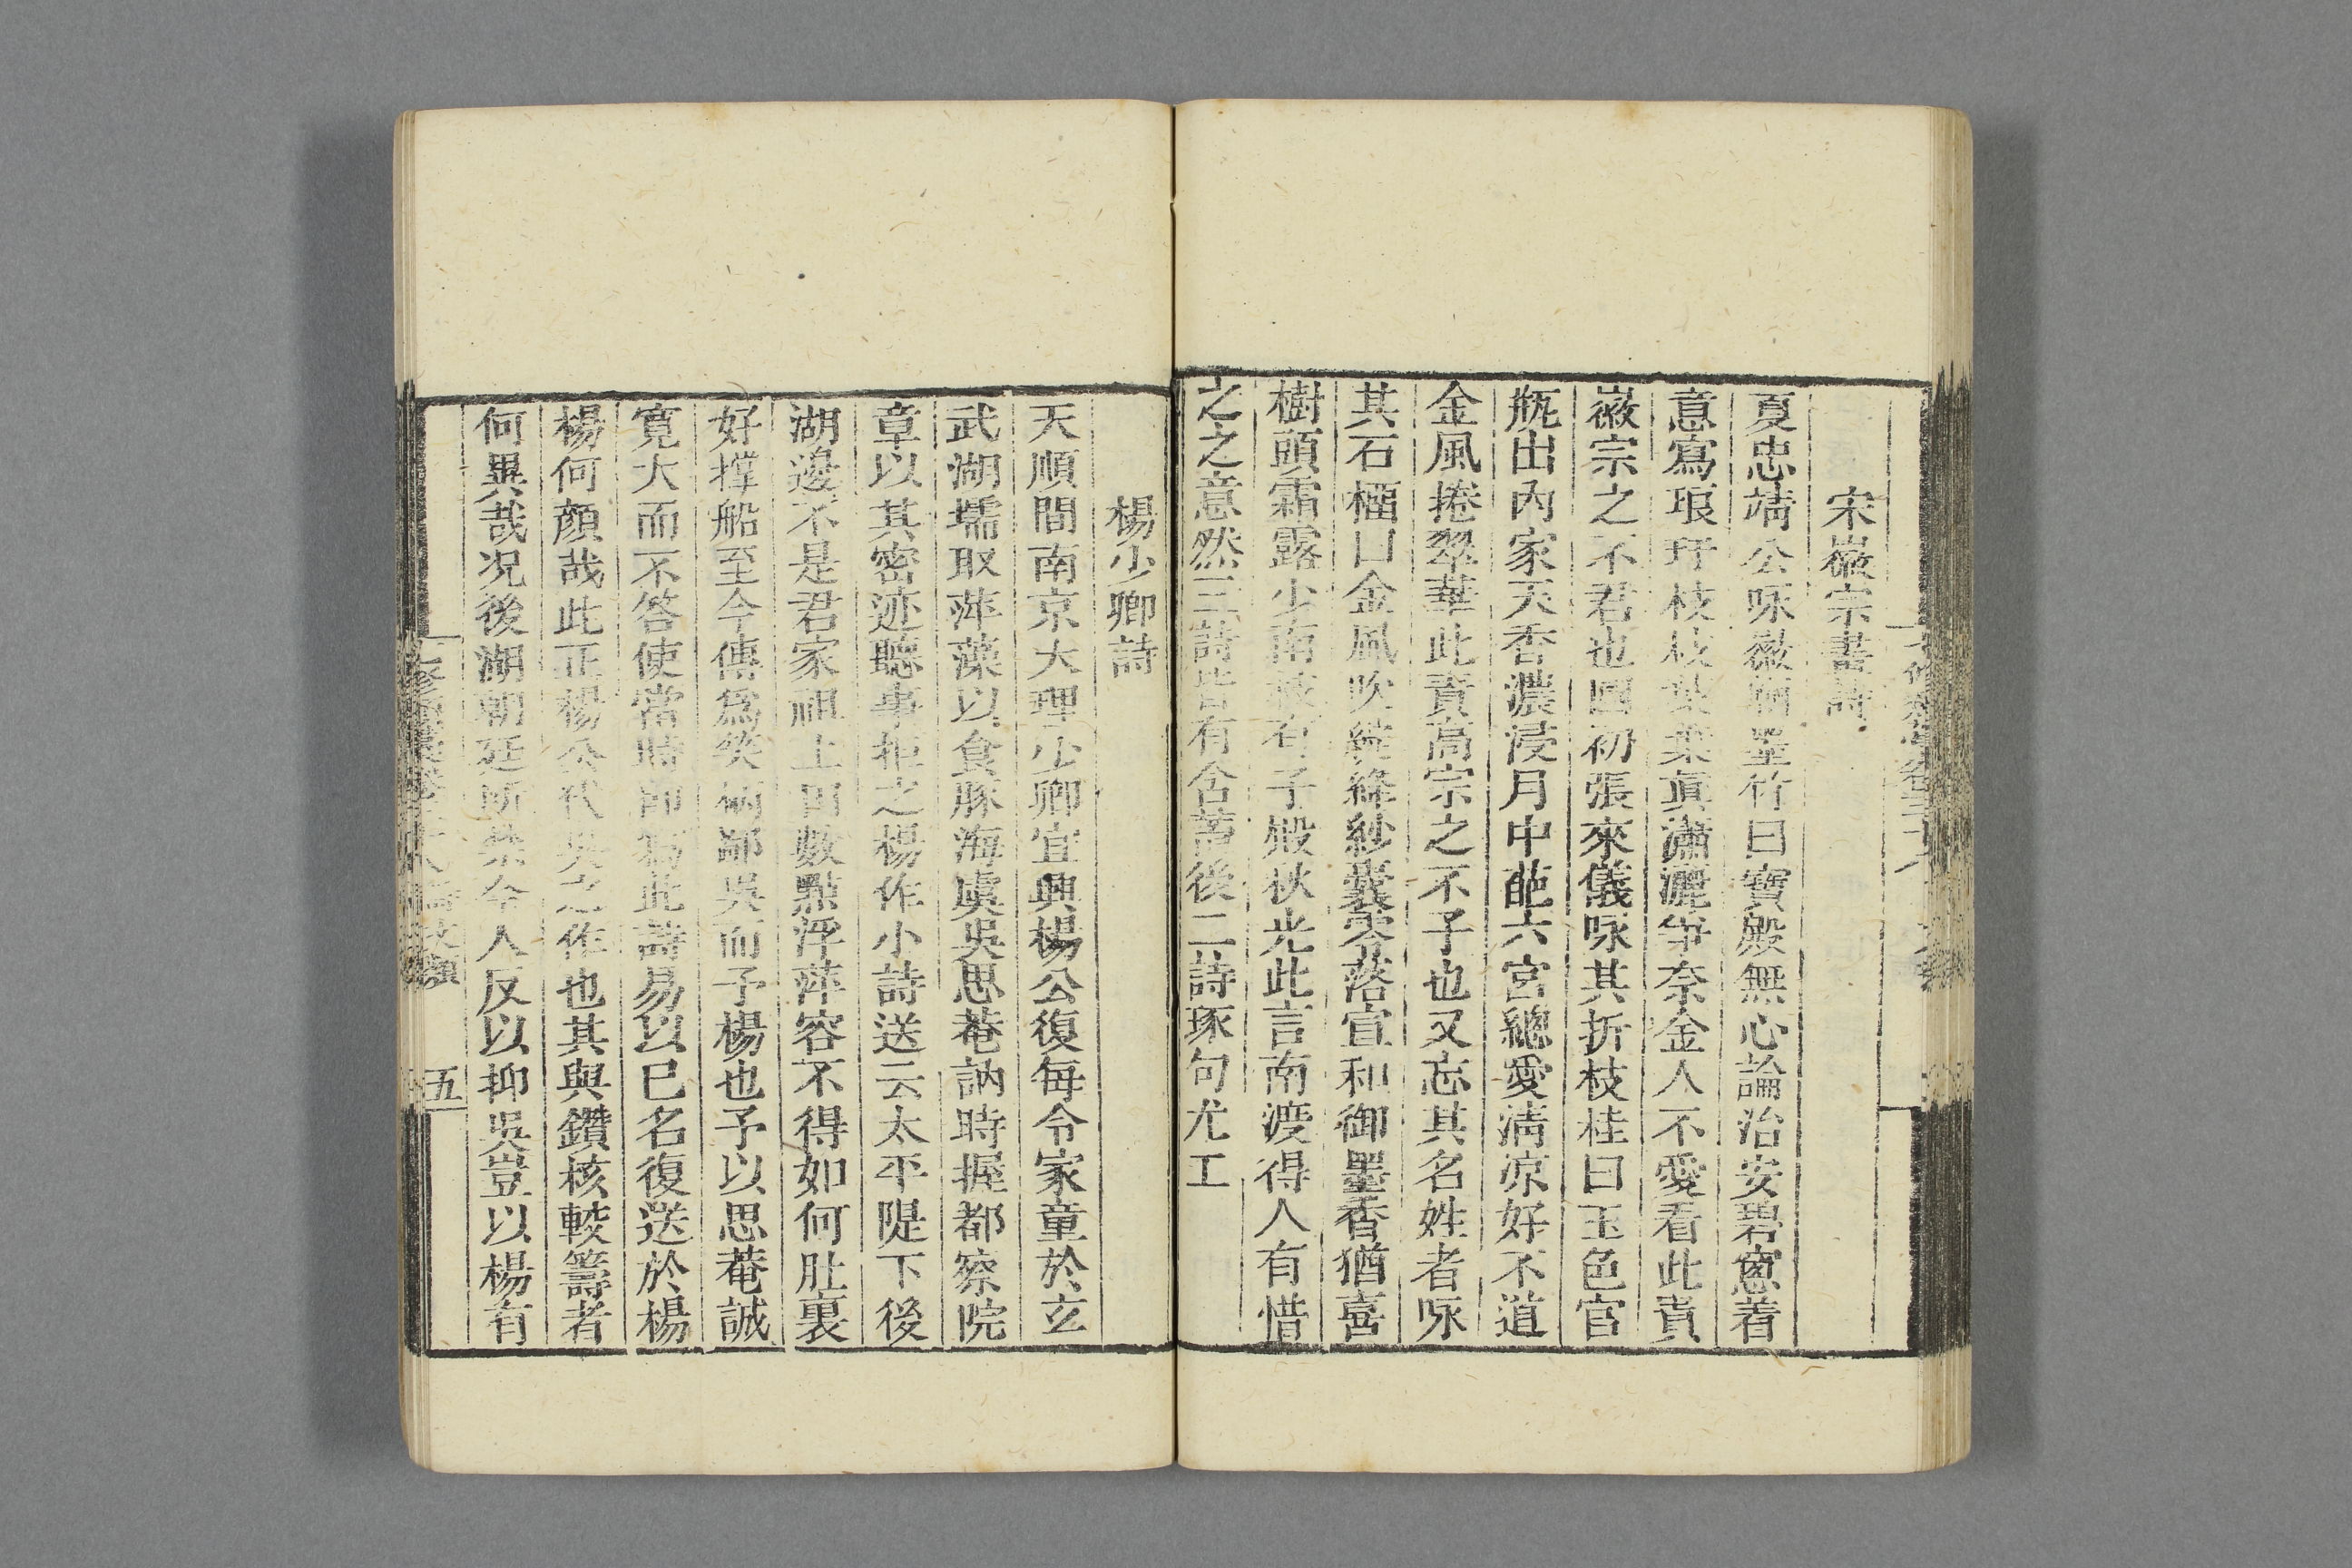 宋徽宗畫詩
夏忠靖公咏徽廟墨竹曰寶殿無心論治安碧窻着
意寫琅玕枝枝葉葉真瀟灑爭奈金人不愛看此責
徽宗之不君也國初張來儀咏其折枝桂曰玉色官
瓶出內家天香濃浸月中葩六宮總愛清凉好不道
金風捲翠華此責高宗之不子也又忘其名姓者咏
其石榴曰金風吹綻絳紗囊零落宣和御墨香猶喜
樹頭霜露少南枝有子殿秋光此言南渡得人有惜
之之意然三詩皆有含蓄後二詩琢句尤工
楊少卿詩
天順間南京大理少卿宜興楊公復每令家童於玄
武湖壖取萍藻以食豚海虞吳思菴訥時握都察院
章以其密迩聽事拒之楊作小詩送云太平隄下後
湖邊不是君家祖上田數點浮萍容不得如何肚裏
好撑船至今傳爲笑柄鄙吳而予楊也予以思菴誠
寛大而不答使當時即寫此詩易以已名復送於楊
楊何顔哉此正楊公代吳之作也其與鑽核較籌者
何異哉况後湖朝廷所禁令人反以抑吳豈以楊有
五